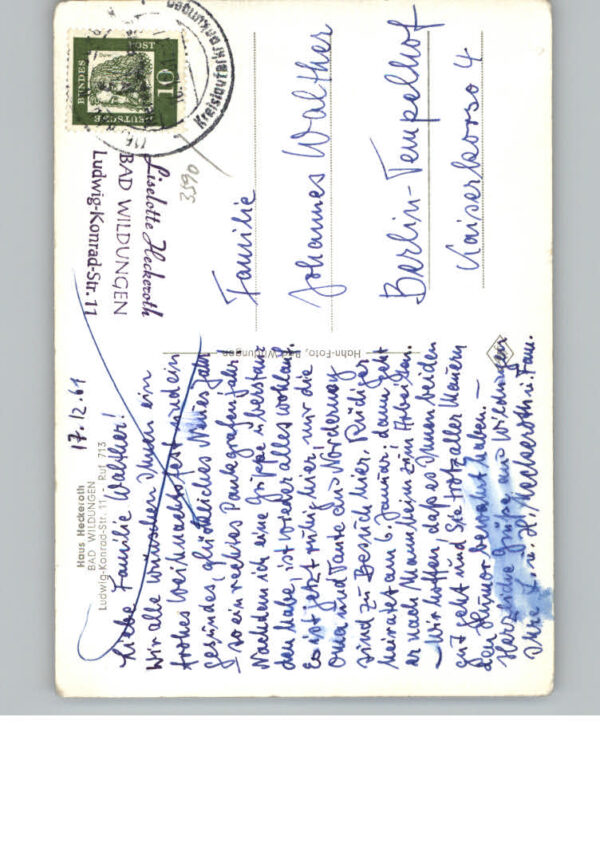 Haus Heckeroth
BAD WILDUNGEN
Ludwig-Konrad-Str. 11 - Ruf 713
17.12.61
Liebe Familie Walther!
Wir alle wünschen Ihnen ein
frohes Weihnachtsfest und ein
gesundes, glückliches Neues Jahr
so ein rechtes Paulegrafenjahr!
Nachdem ich eine Grippe überstan-
den habe, ist wieder alles wohlauf.
Es ist jetzt ruhig hier, nur die
Oma und Tante aus Norderney
sind zu Besuch hier. Rüdiger
heiratet am 6. Januar, dann geht
er nach Mannheim zum Arbeiten.
- Wir hoffen, daß es Ihnen beiden
gut geht und Sie trotz aller Mauern
den Humor bewahrt haben. -
Herzliche Grüße aus Wildungen
Ihre L. u. H. Heckeroth u. Fam.
Hahn-Foto, Bad Wildungen
Liselotte Heckeroth
BAD WILDUNGEN
Ludwig-Konrad-Str. 11
3590
DEUTSCHE
BUNDES
POST
10
Kreislaufstörungen
Familie
Johannes Walther
Berlin-Tempelhof
Kaiserkorso 4